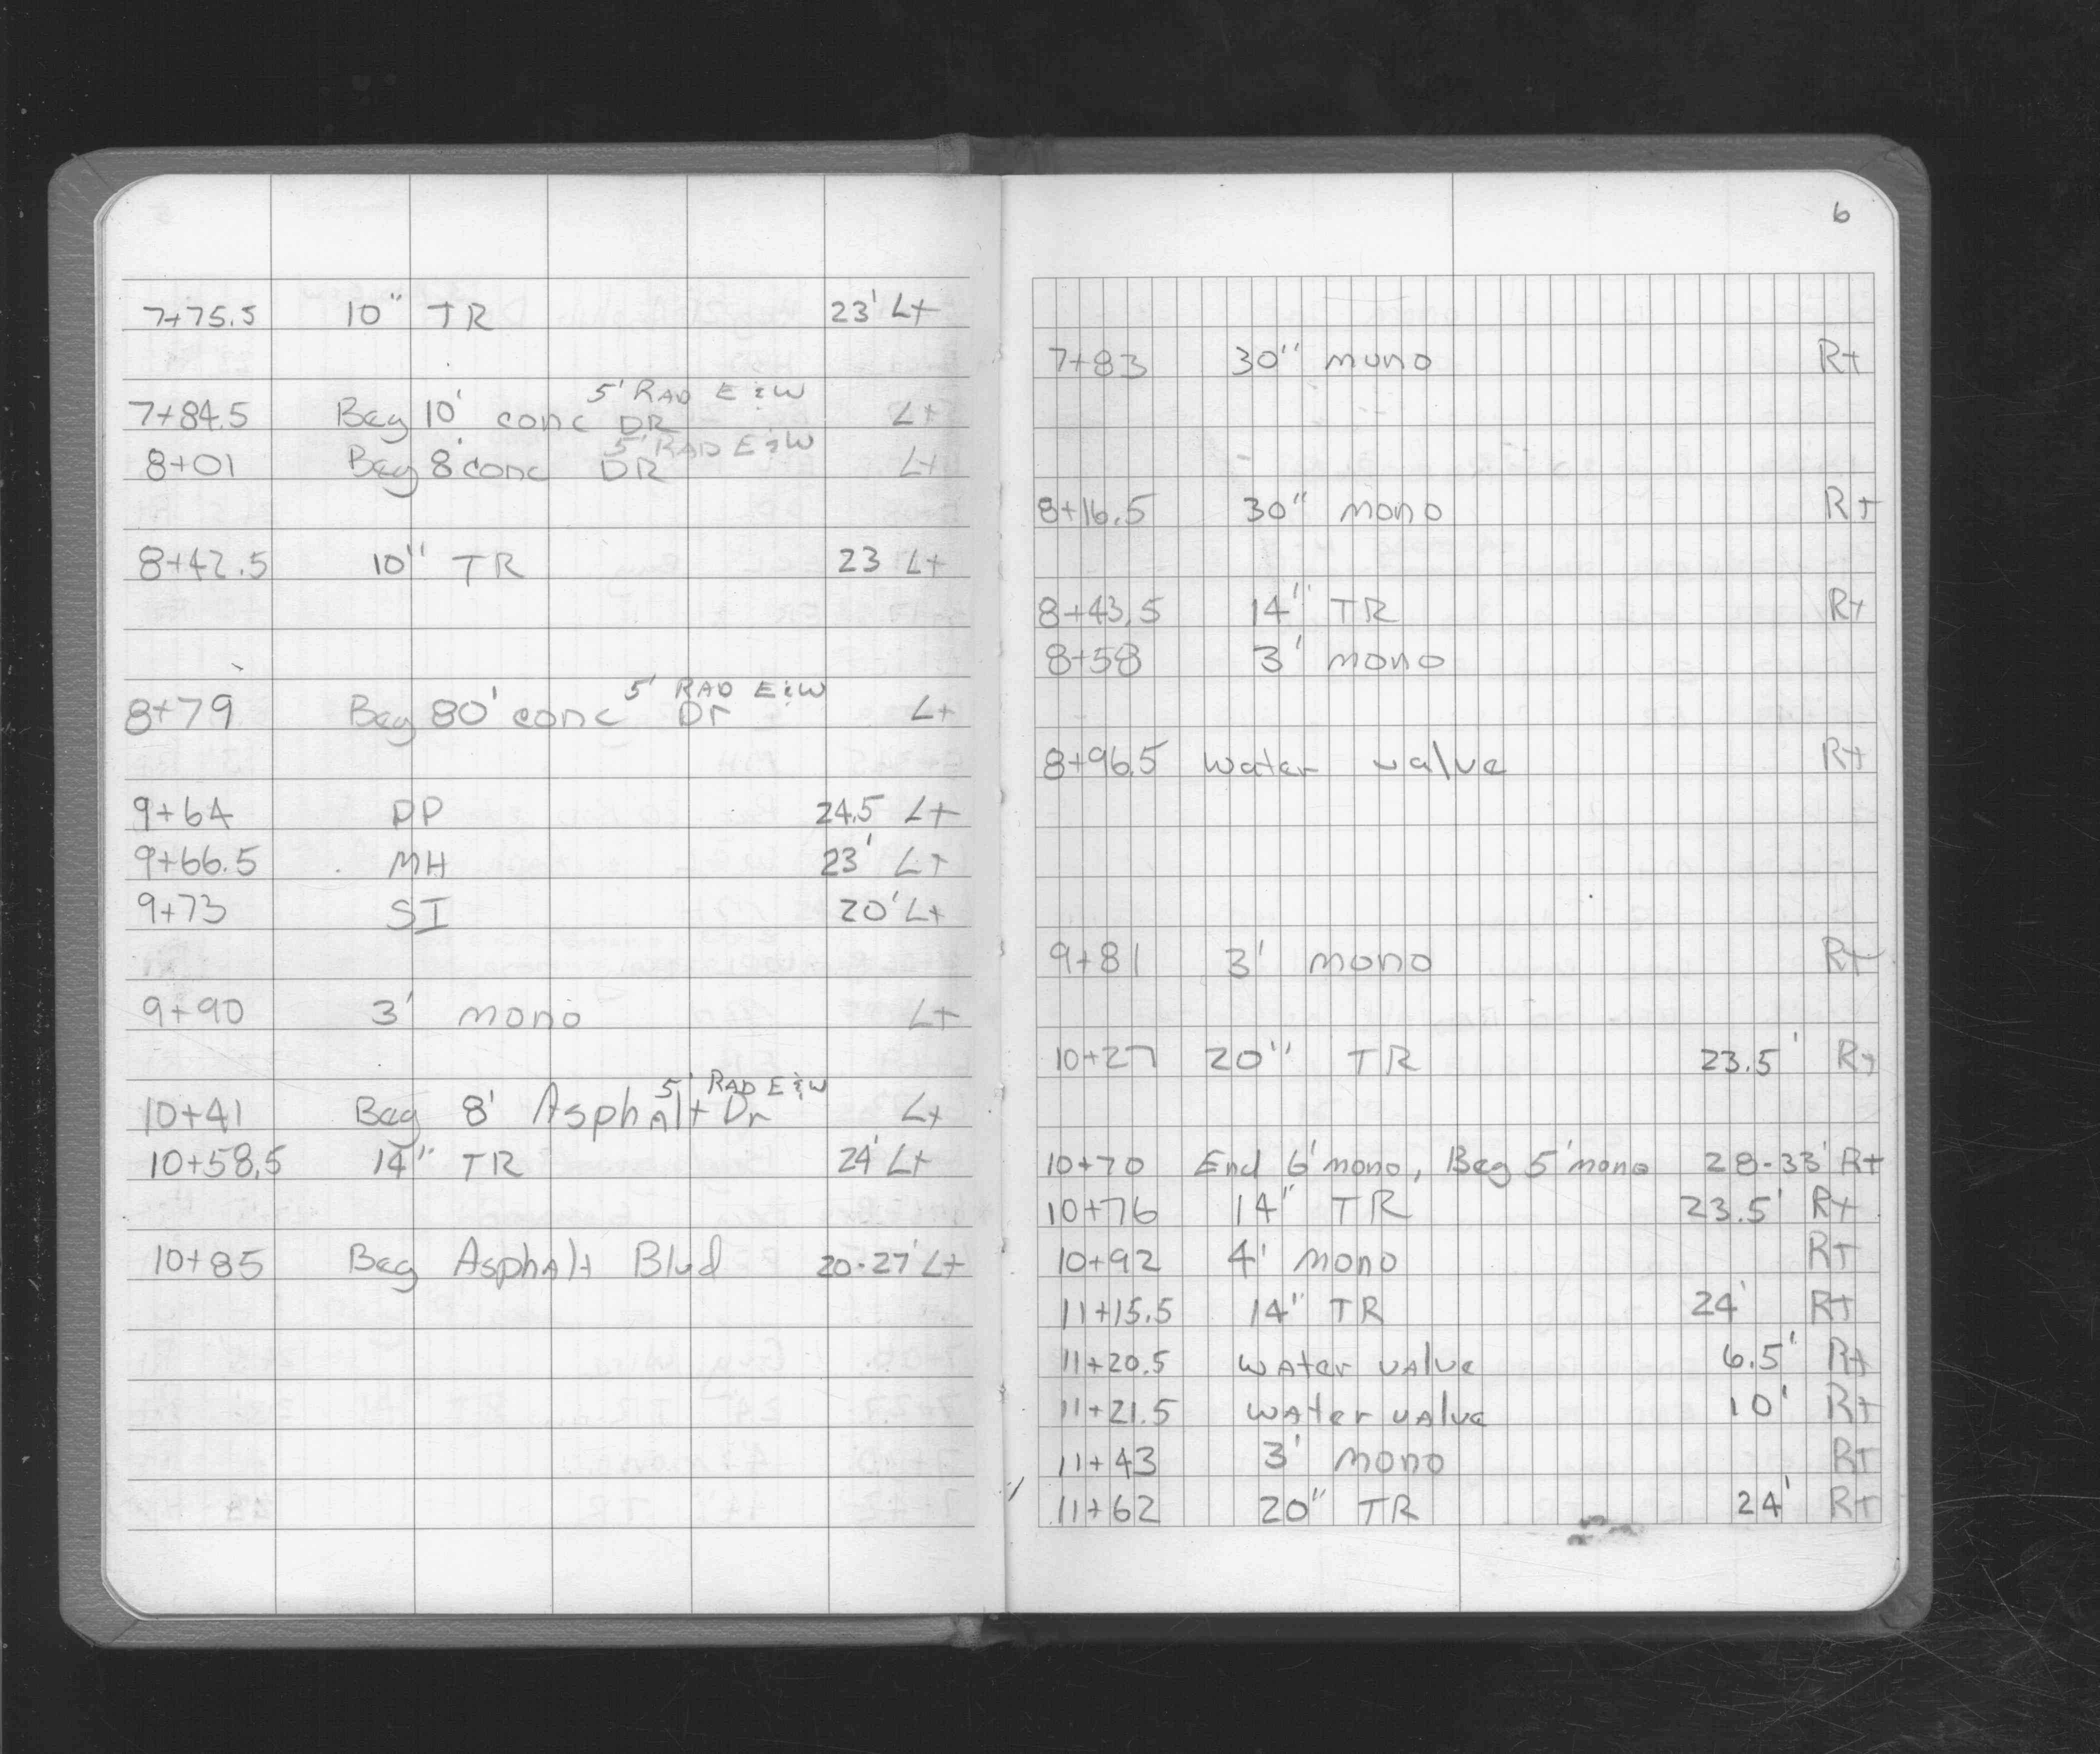 7+75.5 10" TR 23' Lt
5' RAD E & W
7+84.5 Beg 10' conc DR Lt
5' RAD E & W
8+01 Beg 8' conc DR Lt
8+42.5 10" TR 23 Lt
5' RAD E & W
8+79 Beg 80' conc Dr Lt
9+64 PP 24.5 Lt
9+66.5 MH 23' Lt
9+73 SI 20' Lt
9+90 3' mono Lt
5' RAD E & W
10+41 Beg 8' Asphalt Dr Lt
10+58.5 14" TR 24' Lt
10+85 Beg Asphalt Blvd 20-27' Lt
6
7+83 30" mono Rt
8+16.5 30" mono Rt
8+43.5 14" TR Rt
8+58 3' mono
8+96.5 water valve Rt
9+81 3' mono Rt
10+27 20" TR 23.5' Rt
10+70 End 6' mono, Beg 5' mono 28-33' Rt
10+76 14" TR 23.5' Rt
10+92 4' mono Rt
11+15.5 14" TR 24' Rt
11+20.5 water valve 6.5' Rt
11+21.5 water valve 10' Rt
11+43 3' mono Rt
11+62 20" TR 24' Rt